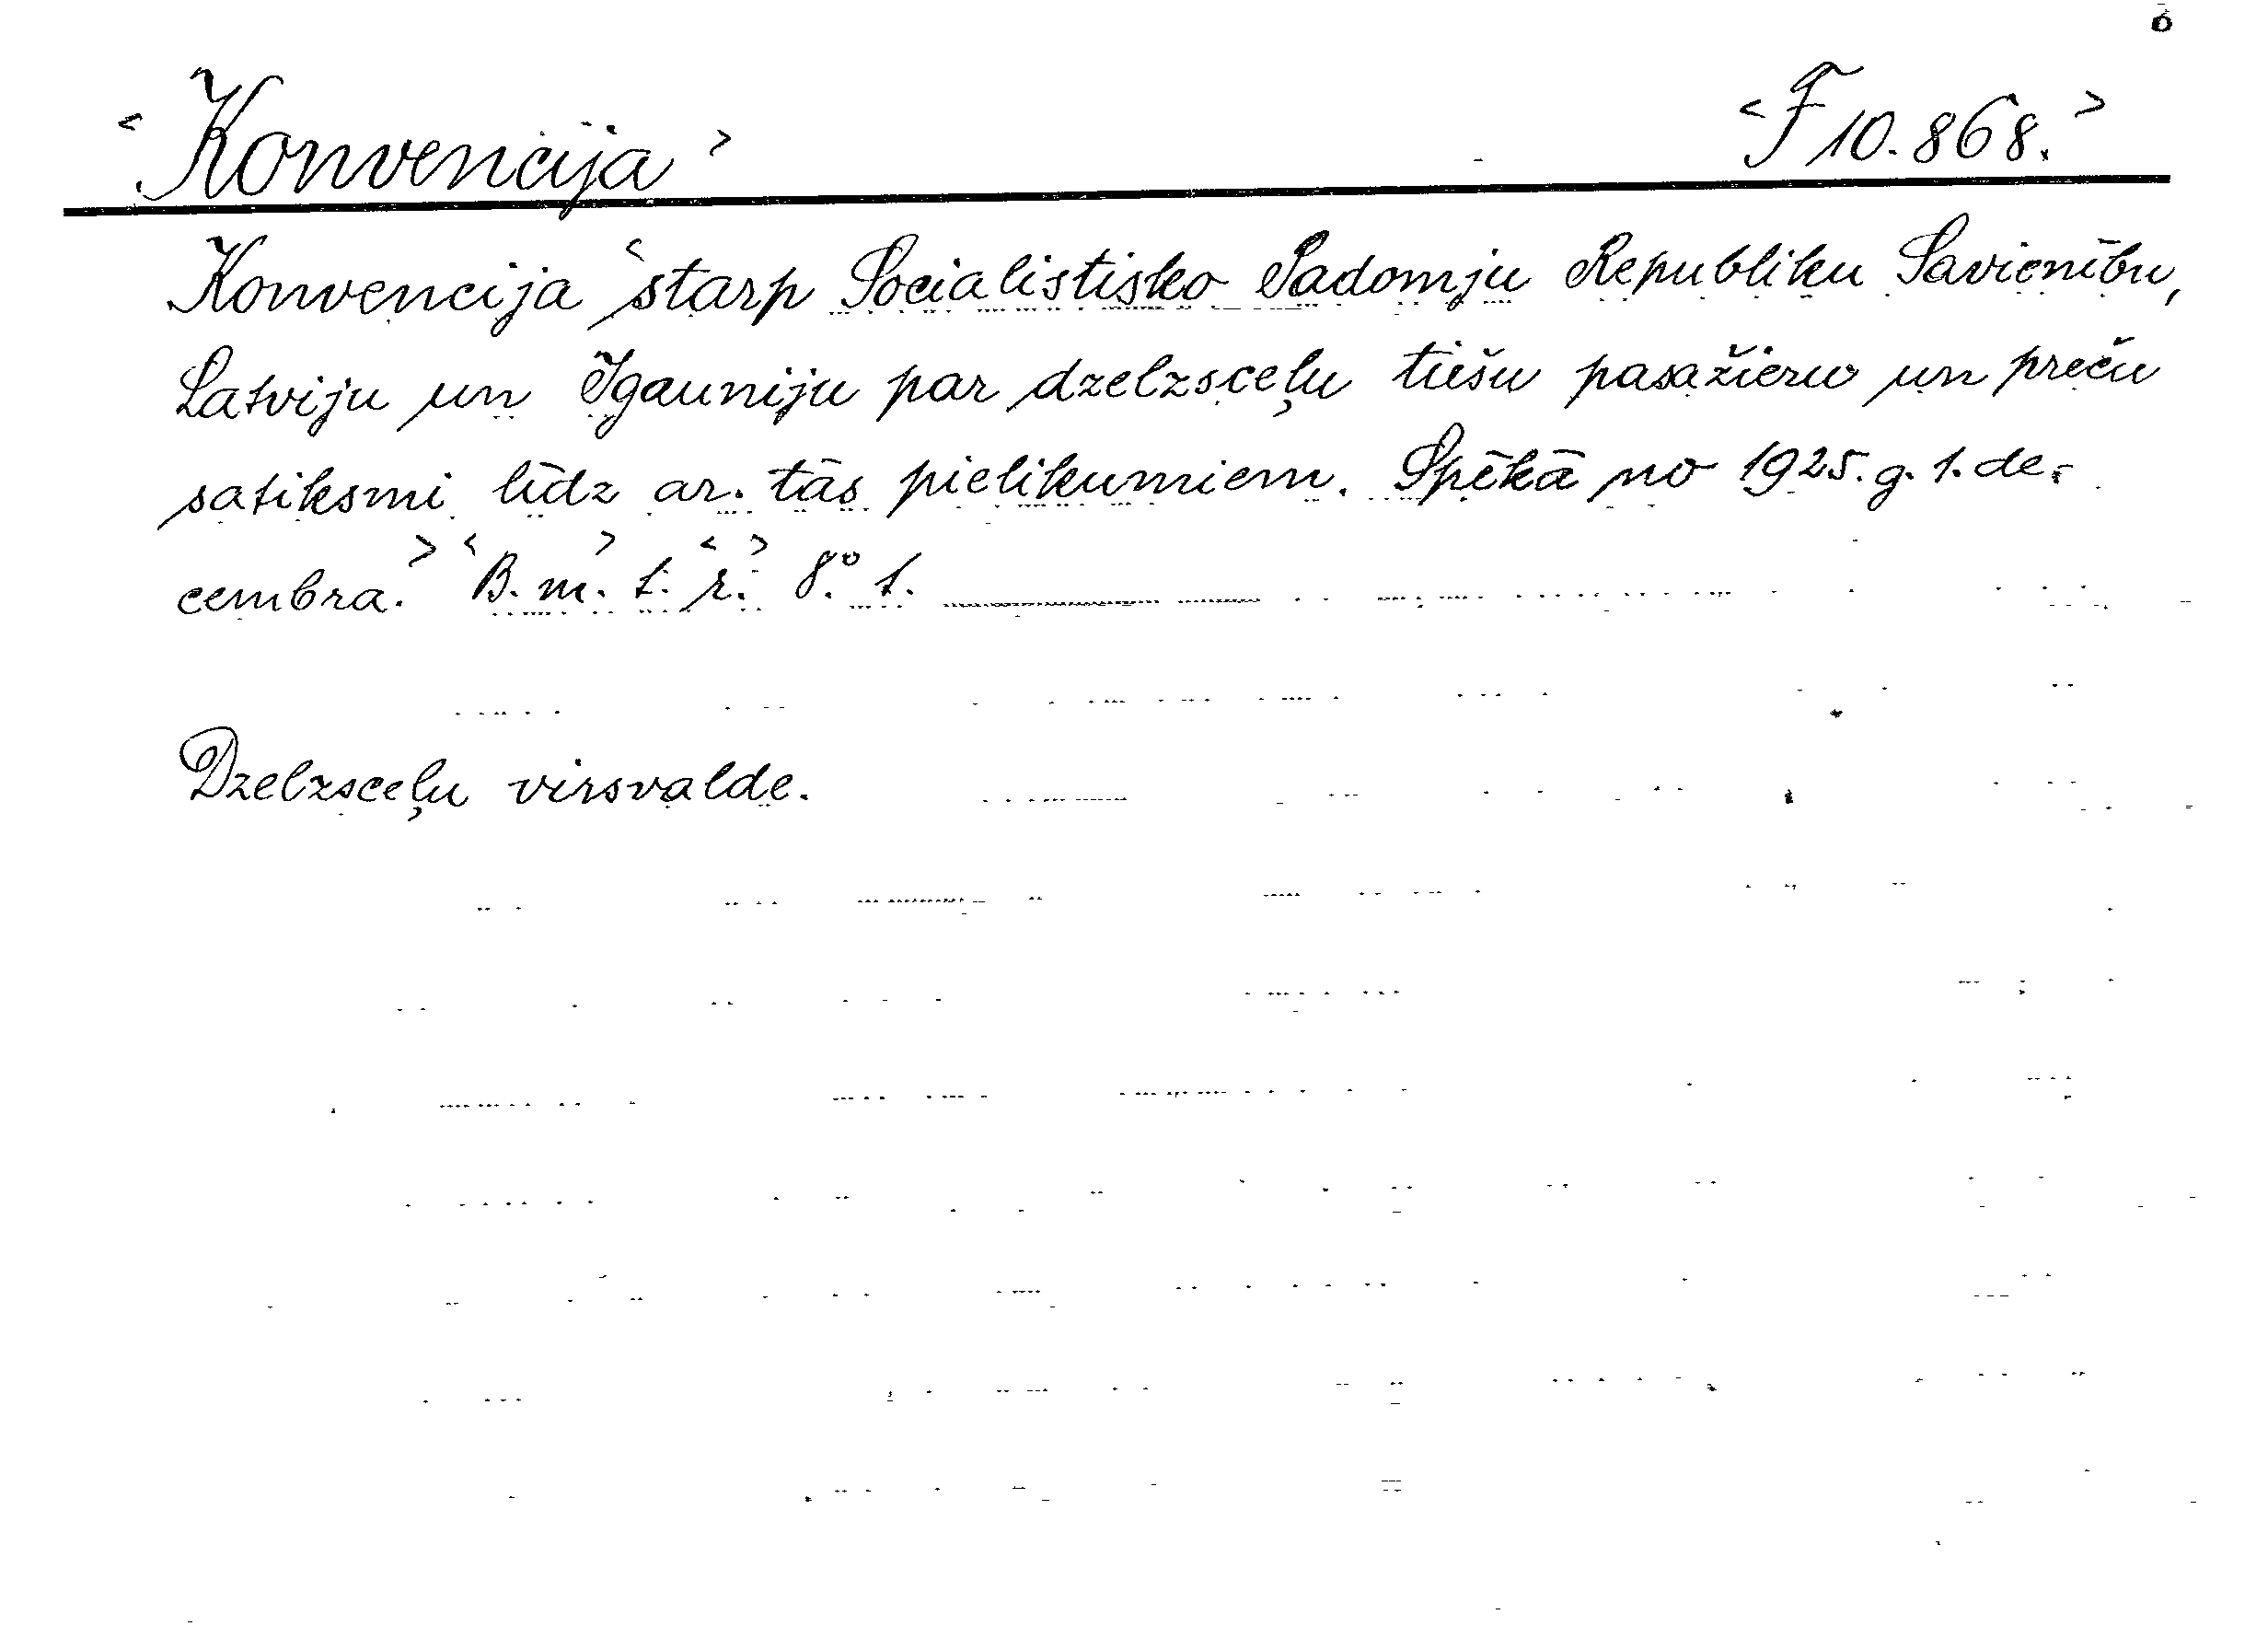 <Konvencija> <F 10.868.>
Konvencija <starp Socialistisko Padomju Republiku Savienību,
Latviju un Igauniju par dzelzsceļu tiešu pasažieru un preču
satiksmi līdz ar tās pielikumiem. Spēkā no 1925. g. 1. de-
cembra.> <B. m.> t. <r.> 8° t.
Dzelzsceļu virsvalde.